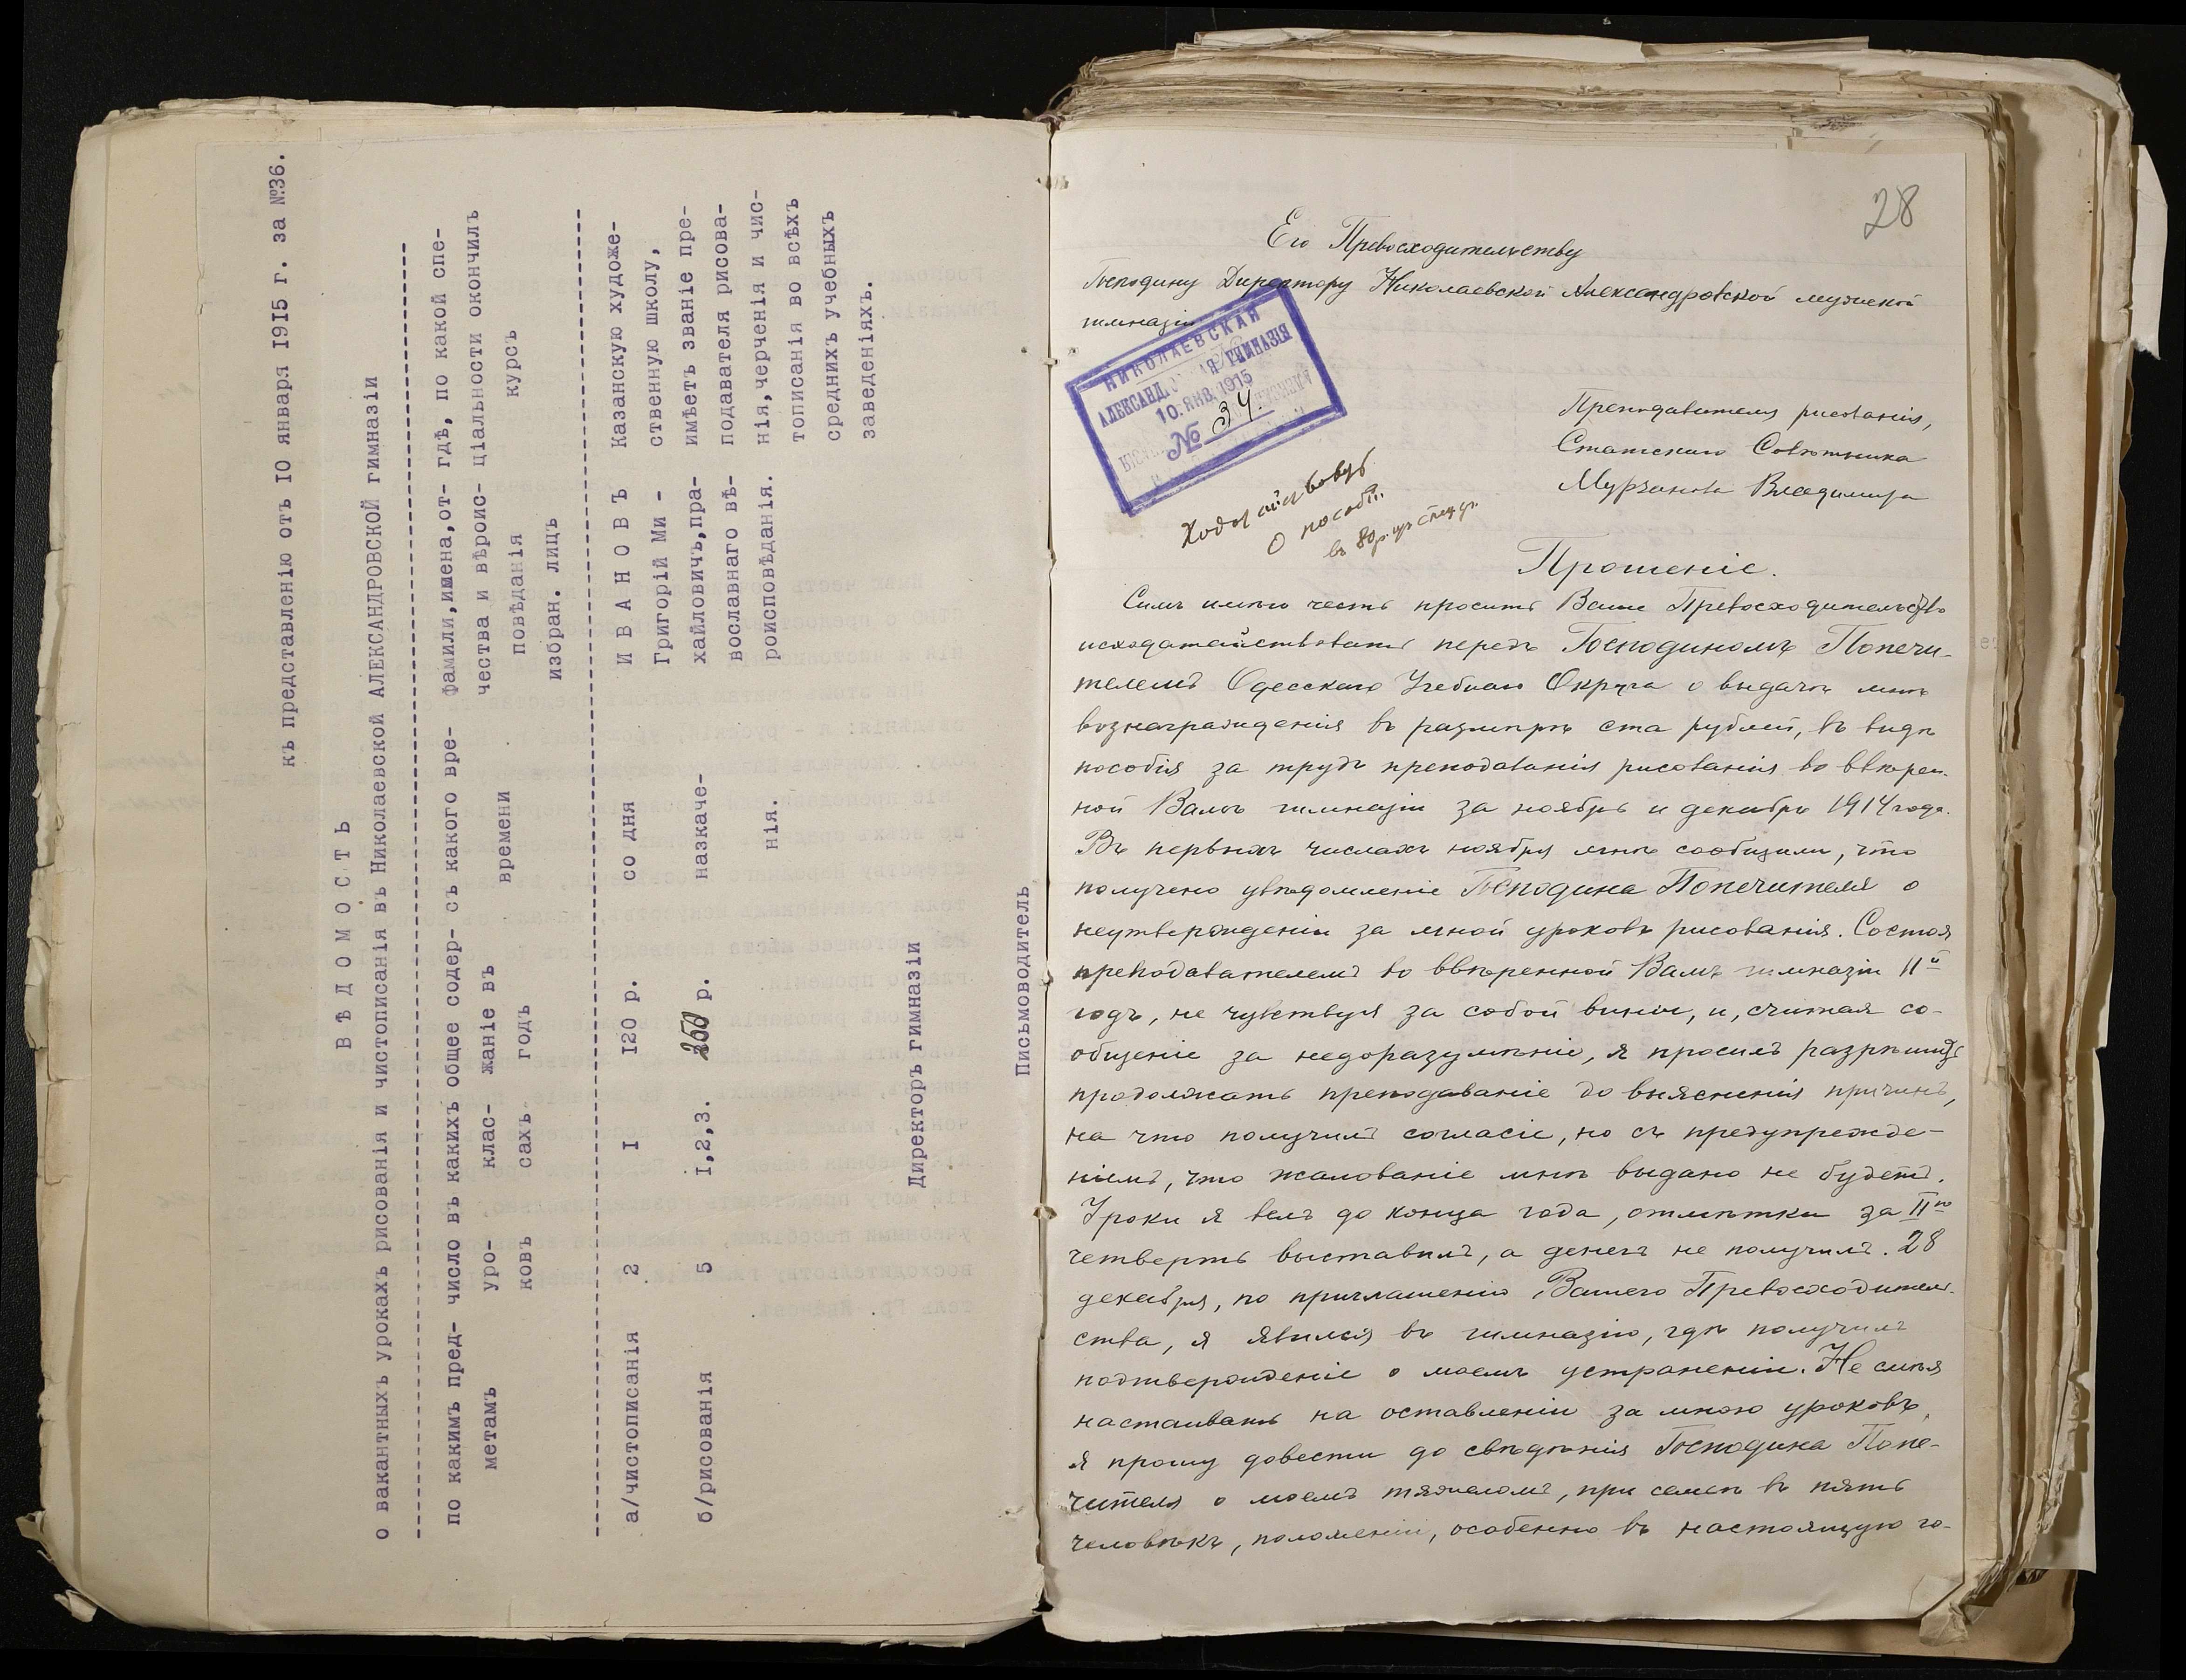 къ представленію отъ 10 января 1915 г. за №36.
ВѢДОМОСТЬ
о вакантныхъ урокахъ рисованія и чистописанія въ Николаевской АЛЕКСАНДРОВСКОЙ гимназіи
по какимъ пред- число въ какихъ общее содер- съ какого вре- Фамили,имена,от- гдѣ, по какой спе-
метамъ уро- клас- жаніе въ времени чества и вѣроис- ціальности окончилъ
ковъ сахъ годъ повѣданія курсъ
избран. лицъ
а/чистописанія 2 I I20 р. со дня ИВАНОВЪ Казанскую художе-
Григорій Ми - ственную школу,
б/рисованія 5 I,2,3. 250 р. назначе- хайловичъ,пра- имѣетъ званіе пре-
вославнаго вѣ- подавателя рисова-
нія. роисповѣданія. нія,черченія и чис-
тописанія во всѣхъ
среднихъ учебныхъ
заведеніяхъ.
Директоръ гимназіи
Письмоводитель
28
Его Превосходительству
Господину Директору Николаевской Александровской мужской
гимназіи
НИКОЛАЕВСКАЯ
АЛЕКСАНДРОВСКАЯ ГИМНАЗІЯ
10. ЯНВ. 1915
№ 34
Преподавателя рисованія,
Статскаго Совѣтника
Мурзанова Владиміра
Ходатайствовать
о пособіи
въ 80 р. изъ спец. ср.
Прошеніе.
Симъ имѣю честь просить Ваше Превосходительство
исходатайствовать передъ Господиномъ Попечи-
телемъ Одесскаго Учебнаго Округа о выдачѣ мнѣ
вознагражденія въ размѣрѣ ста рублей, въ видѣ
пособія за трудъ преподаванія рисованія во ввѣрен-
ной Вамъ гимназіи за ноябрь и декабрь 1914 года.
Въ первыхъ числахъ ноября мнѣ сообщили, что
получено увѣдомленіе Господина Попечителя о
неутвержденіи за мной уроковъ рисованія. Состоя
преподавателемъ во ввѣренной Вамъ гимназіи 11й
годъ, не чувствуя за собой вины, и, считая со-
общеніе за недоразумѣніе, я просилъ разрѣшить
продолжать преподаваніе до выясненія причинъ,
на что получилъ согласіе, но съ предупрежде-
ніемъ, что жалованіе мнѣ выдано не будетъ.
Уроки я велъ до конца года, отмѣтки за IIю
четверть выставилъ, а денегъ не получилъ. 28
декабря, по приглашенію Вашего Превосходитель-
ства, я явился въ гимназію, гдѣ получилъ
подтвержденіе о моемъ устраненіи. Не смѣя
настаивать на оставленіи за мною уроковъ,
я прошу довести до свѣдѣнія Господина Попе-
чителя о моемъ тяжеломъ, при семьѣ въ пять
человѣкъ, положеніи, особенно въ настоящую го-